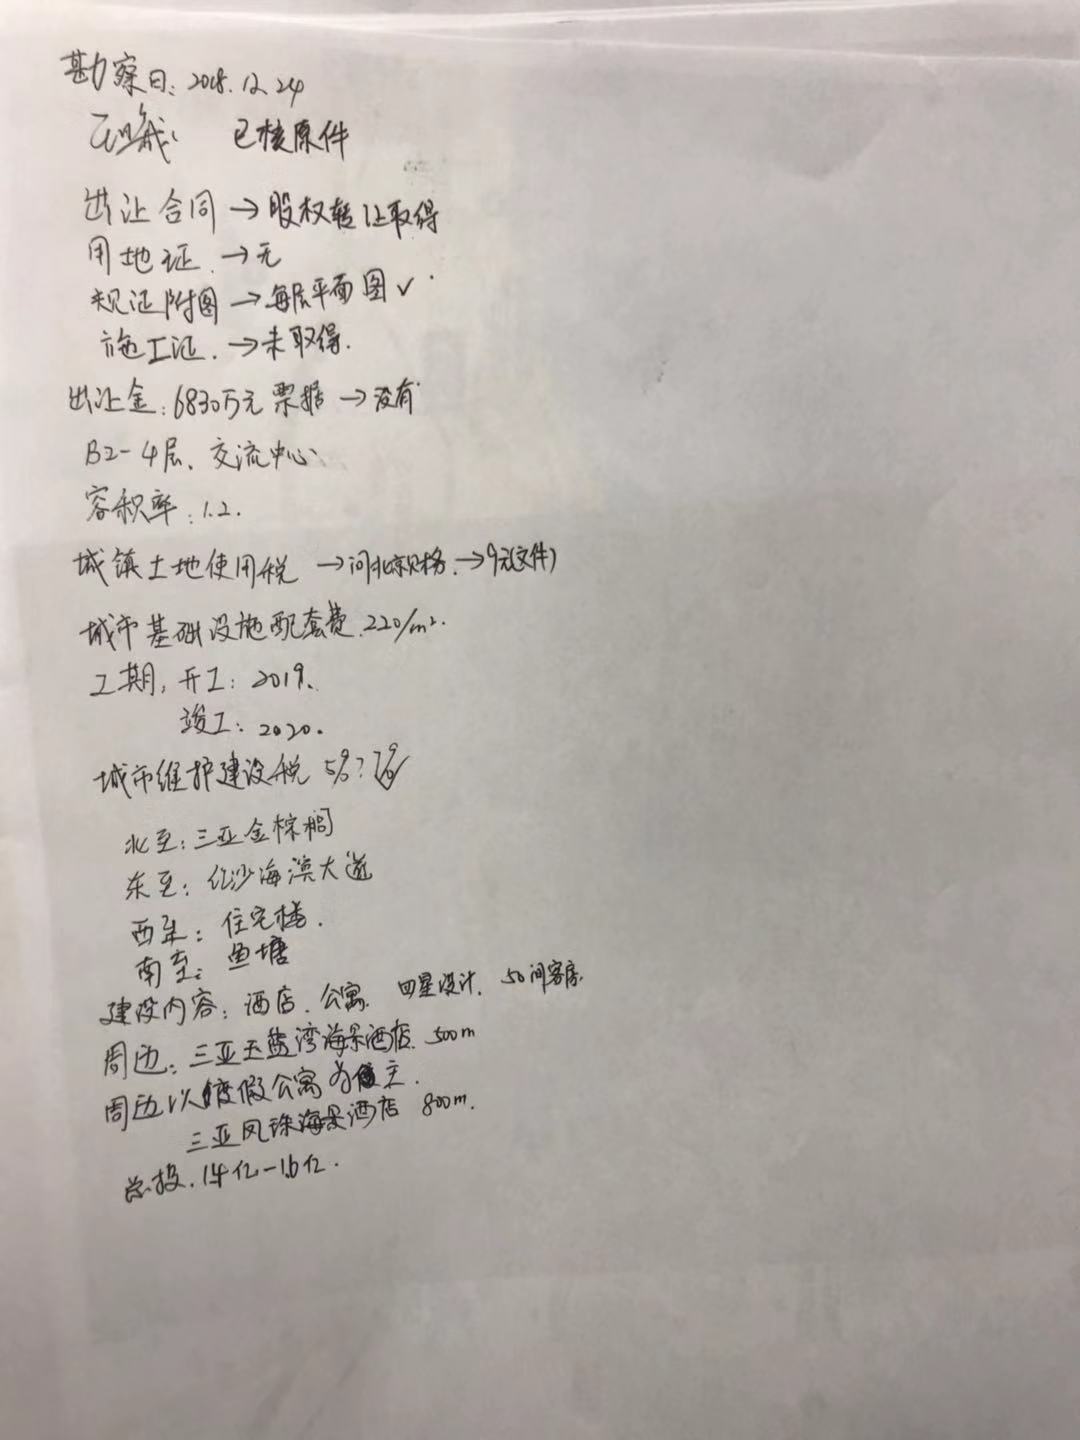 勘察日: 2018.12.24
已核原件
出让合同→股权转让取得
用地证.→无
规证附图→每层平面图✓
施工证.→未取得.
出让金:6830万元票据→没有
B2-4层、交流中心
容积率:1.2.
城镇土地使用税→问北京财务.→9元(文件)
城市基础设施配套费.220/m².
工期,开工:2019.
竣工:2020.
城市维护建设税 5%?7%
北至:三亚金棕榈
东至:海滨大道
西至:住宅楼.
南至:鱼塘
建设内容:酒店.公寓.四星设计.50间客房.
周边:三亚玉蓝湾海景酒店.500m
周边以度假公寓为主.
三亚凤珠海景酒店 800m.
总投.1.4亿-1.6亿.